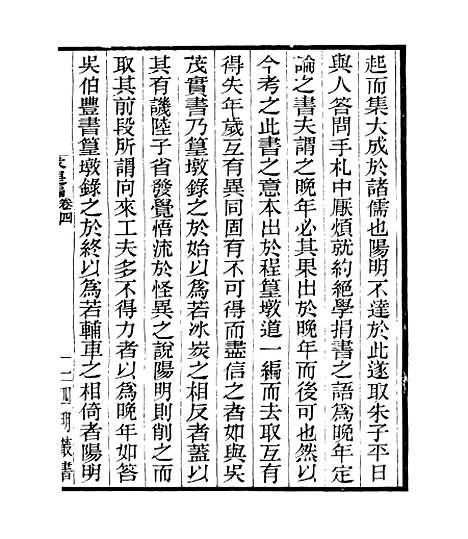 起而集大成於諸儒也陽明不達於此遂取朱子平日
與人答問手札中厭煩就約絕學捐書之語爲晚年定
論之書夫謂之晚年必其果出於晚年而後可也然以
今考之此書之意本出於程篁墩道一編而去取互有
得失年歲互有異同固有不可得而盡信之者如與吳
茂實書乃篁墩錄之於始以爲若冰炭之相反者蓋以
其有譏陸子省發覺悟流於怪異之說陽明則削之而
取其前段所謂向來工夫多不得力者以爲晚年如答
吳伯豐書篁墩錄之於終以爲若輔車之相倚者陽明
卷四
四明叢書